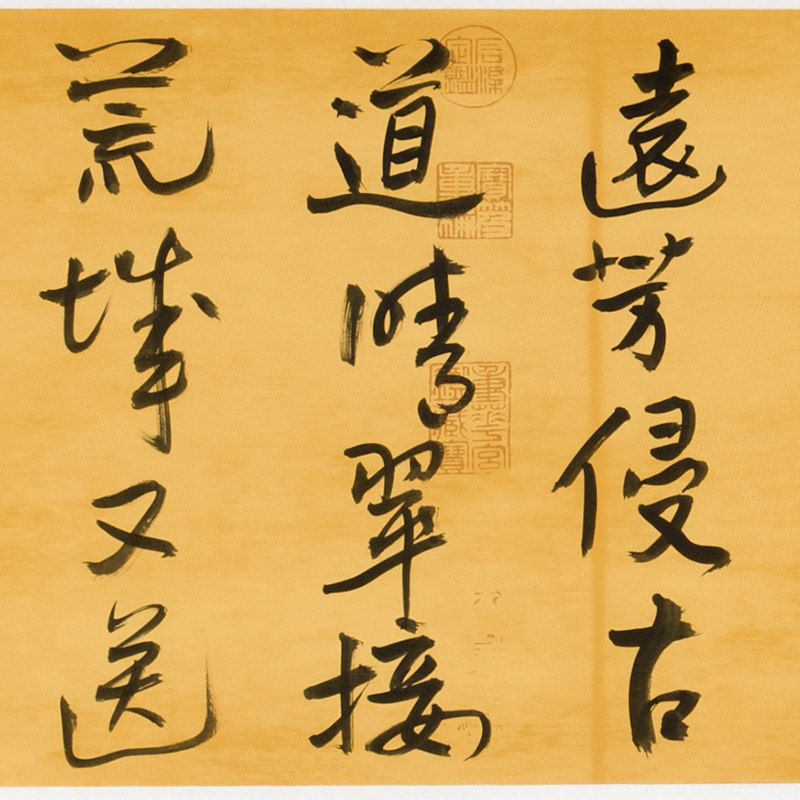 遠芳侵古
道晴翠接
荒城又送